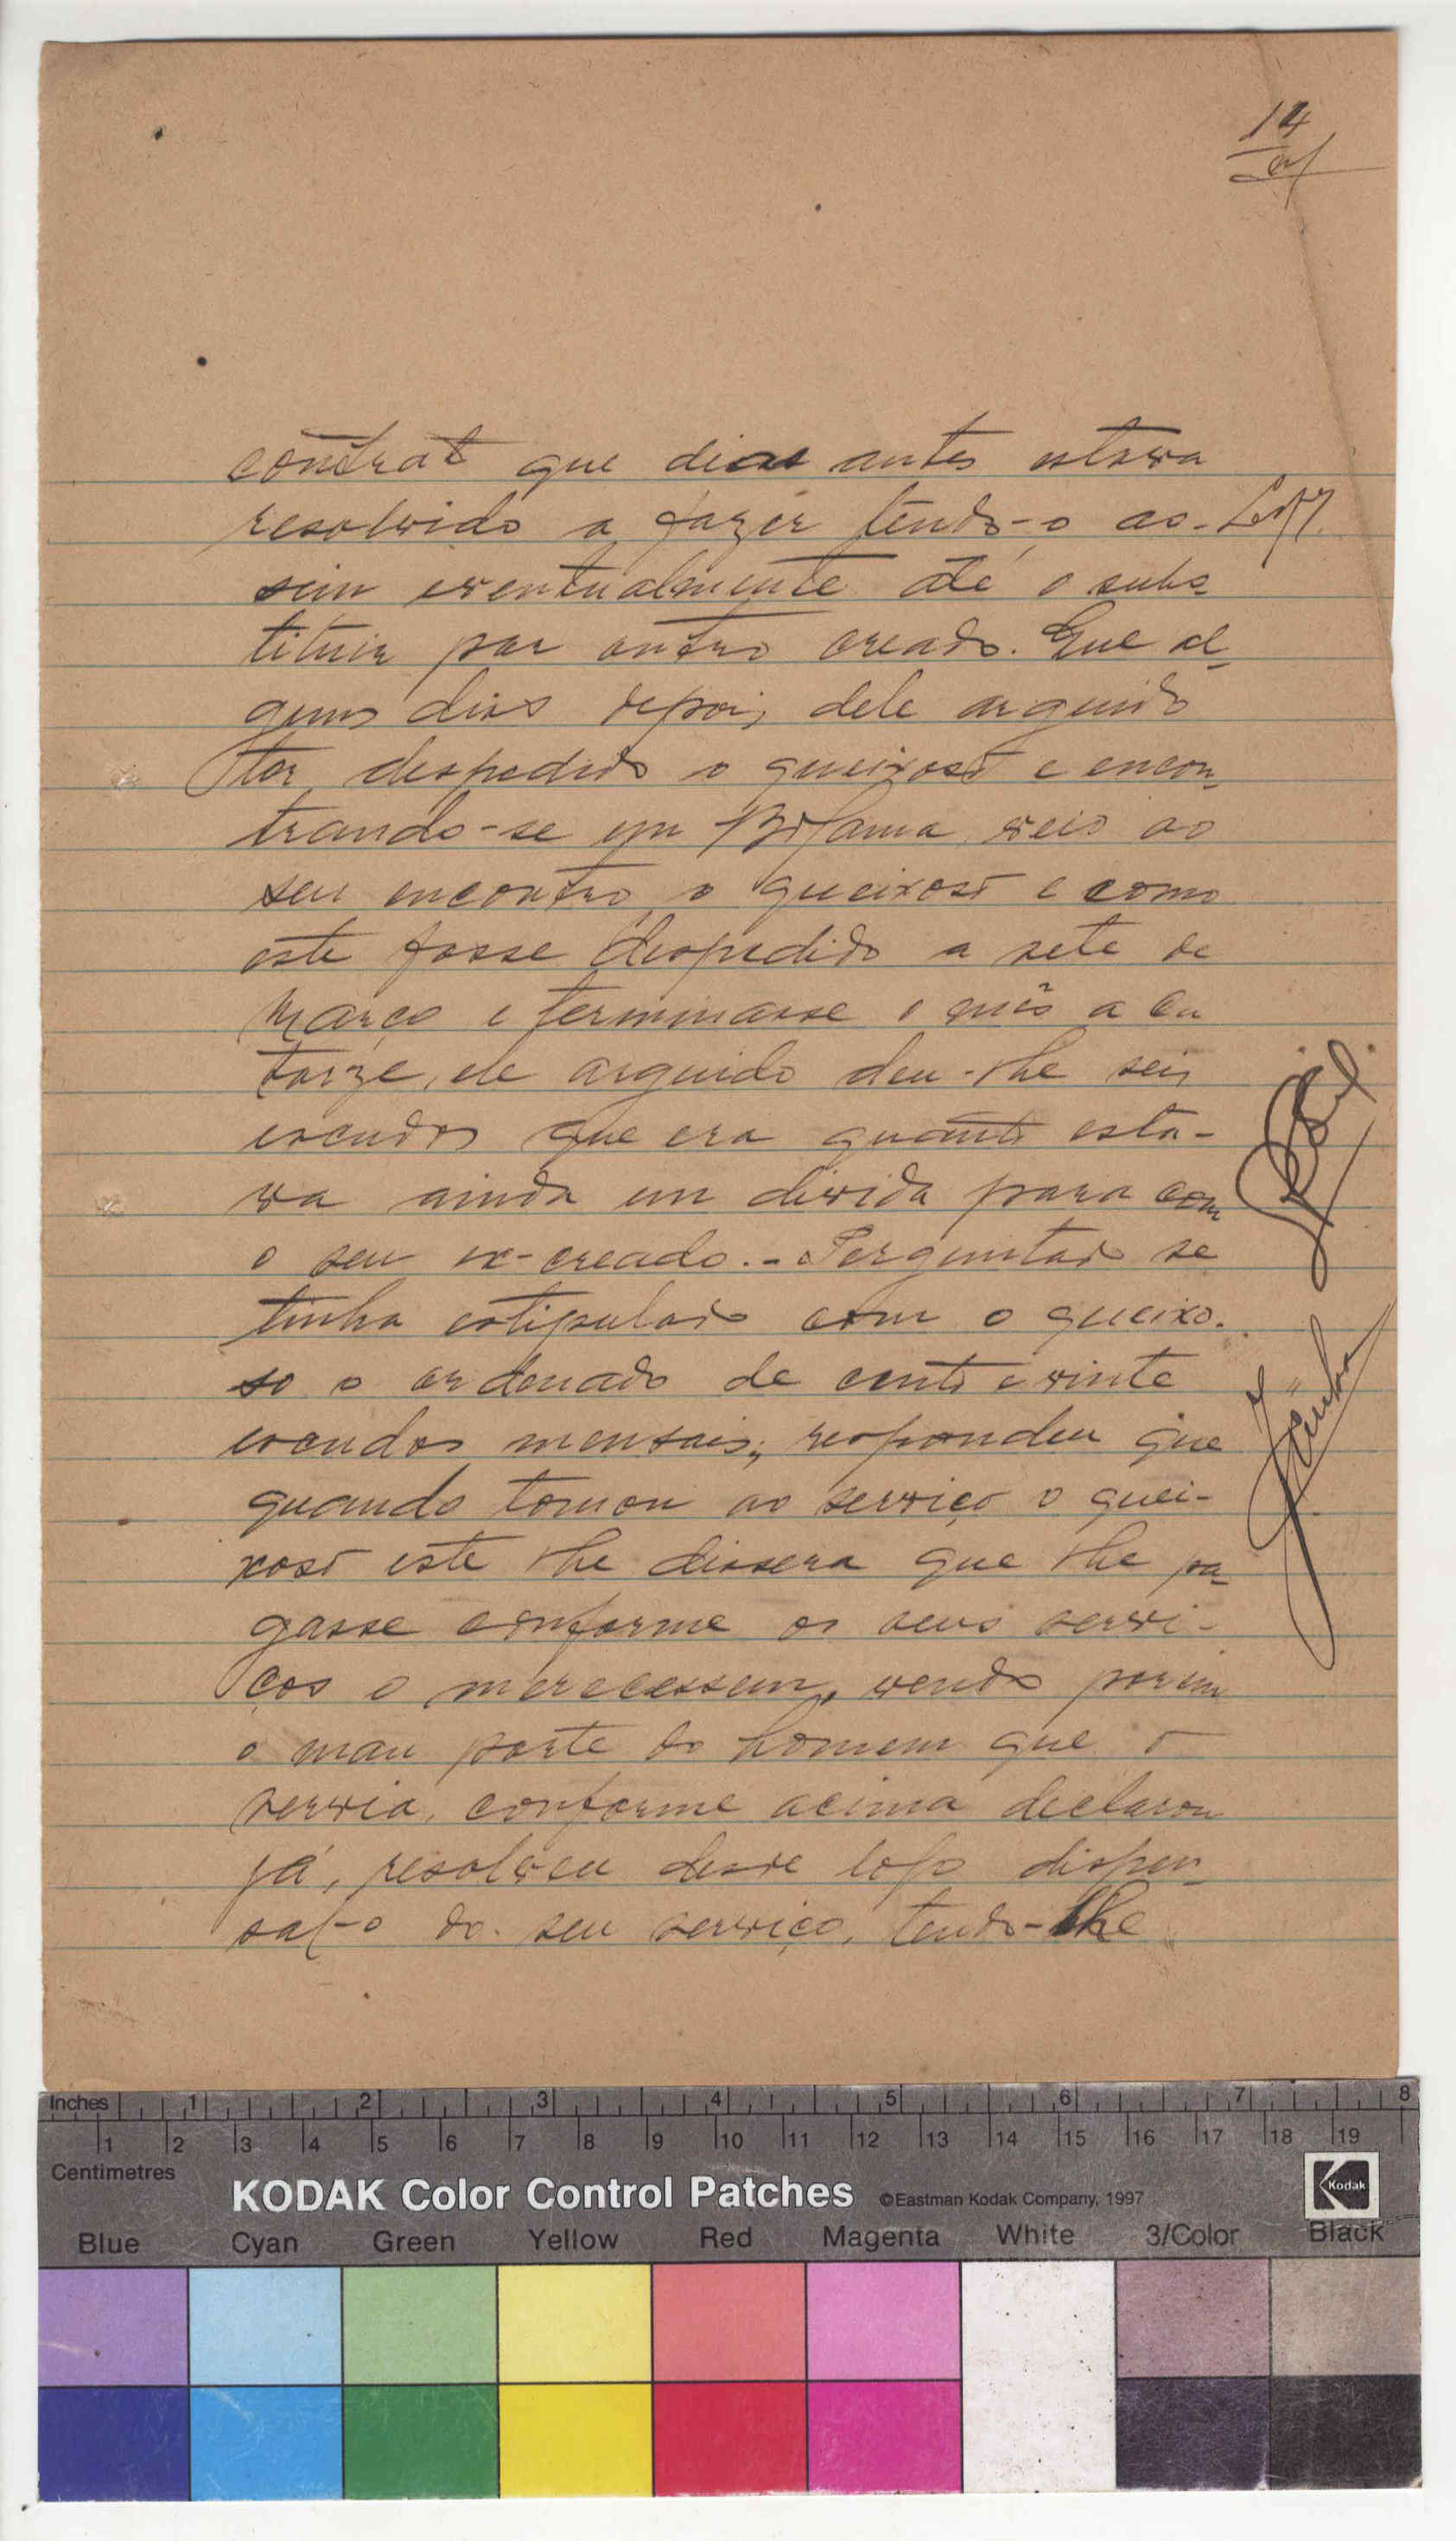 14
contrat que dias antes estava
resolvido a fazer tendo-o as-
sim eventualmente até o subs
tituir por outro creado. Que al
guns dias depois dele arguido
ter despedido o queixoso e encon
trando-se em Bafama veio ao
seu encontro o queixoso e como
este fosse despedido a sete de
Março e terminasse o mês a ca
torze, ele arguido deu-lhe seis
escudos que era quanto esta-
va ainda em divida para com
o seu ex-creado.- Perguntado se
tinha estipulado com o queixo.
so o ordenado de cento e vinte
escudos mensais; respondeu que
quando tomou ao serviço o quei-
xoso este lhe dissera que lhe pa
gasse conforme os seus servi-
ços o merecessem, vendo porem
o mau porte do homem que o
servia, conforme acima declarou
já, resolveu desde logo dispen
sal-o do seu serviço, tendo-lhe
Inches 1 2 3 4 5 6 7 8
1 2 3 4 5 6 7 8 9 10 11 12 13 14 15 16 17 18 19
Centimetres
KODAK Color Control Patches ©Eastman Kodak Company, 1997 Kodak
Blue Cyan Green Yellow Red Magenta White 3/Color Black